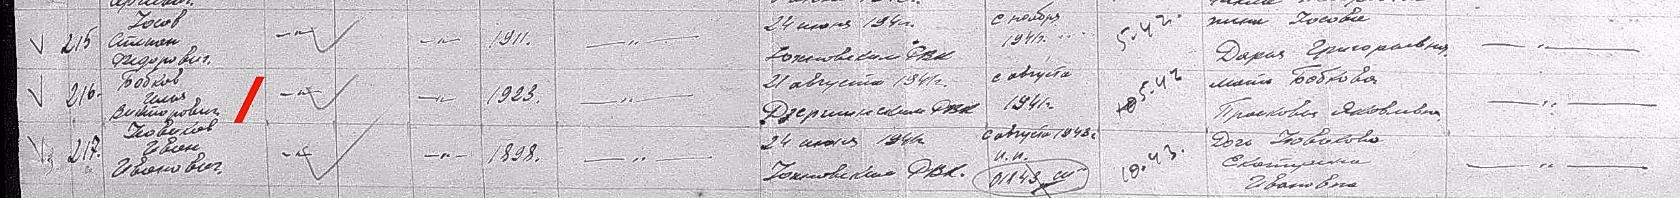 215 Стипан -"- -"- 1911. -"- 24 июня 1941г. с ноября 1941г. 5.42. жена Госова -"-
Федорович. Юхновским РВК Дарья Григорьевна
216. Бобков -"- -"- 1923. -"- 21 августа 1941г. с августа 5.42 мать Бобкова -"-
Илья
Викторович Дзержинским РВК 1941г Просковья Яковлевна
217. Новиков -"- -"- 1898. -"- 24 июня 1941г с августа 1943г. 10.43. Новикова -"-
Иван п.п. Екатерина
Иванович. Юхновским РВК. 01143 Ивановна